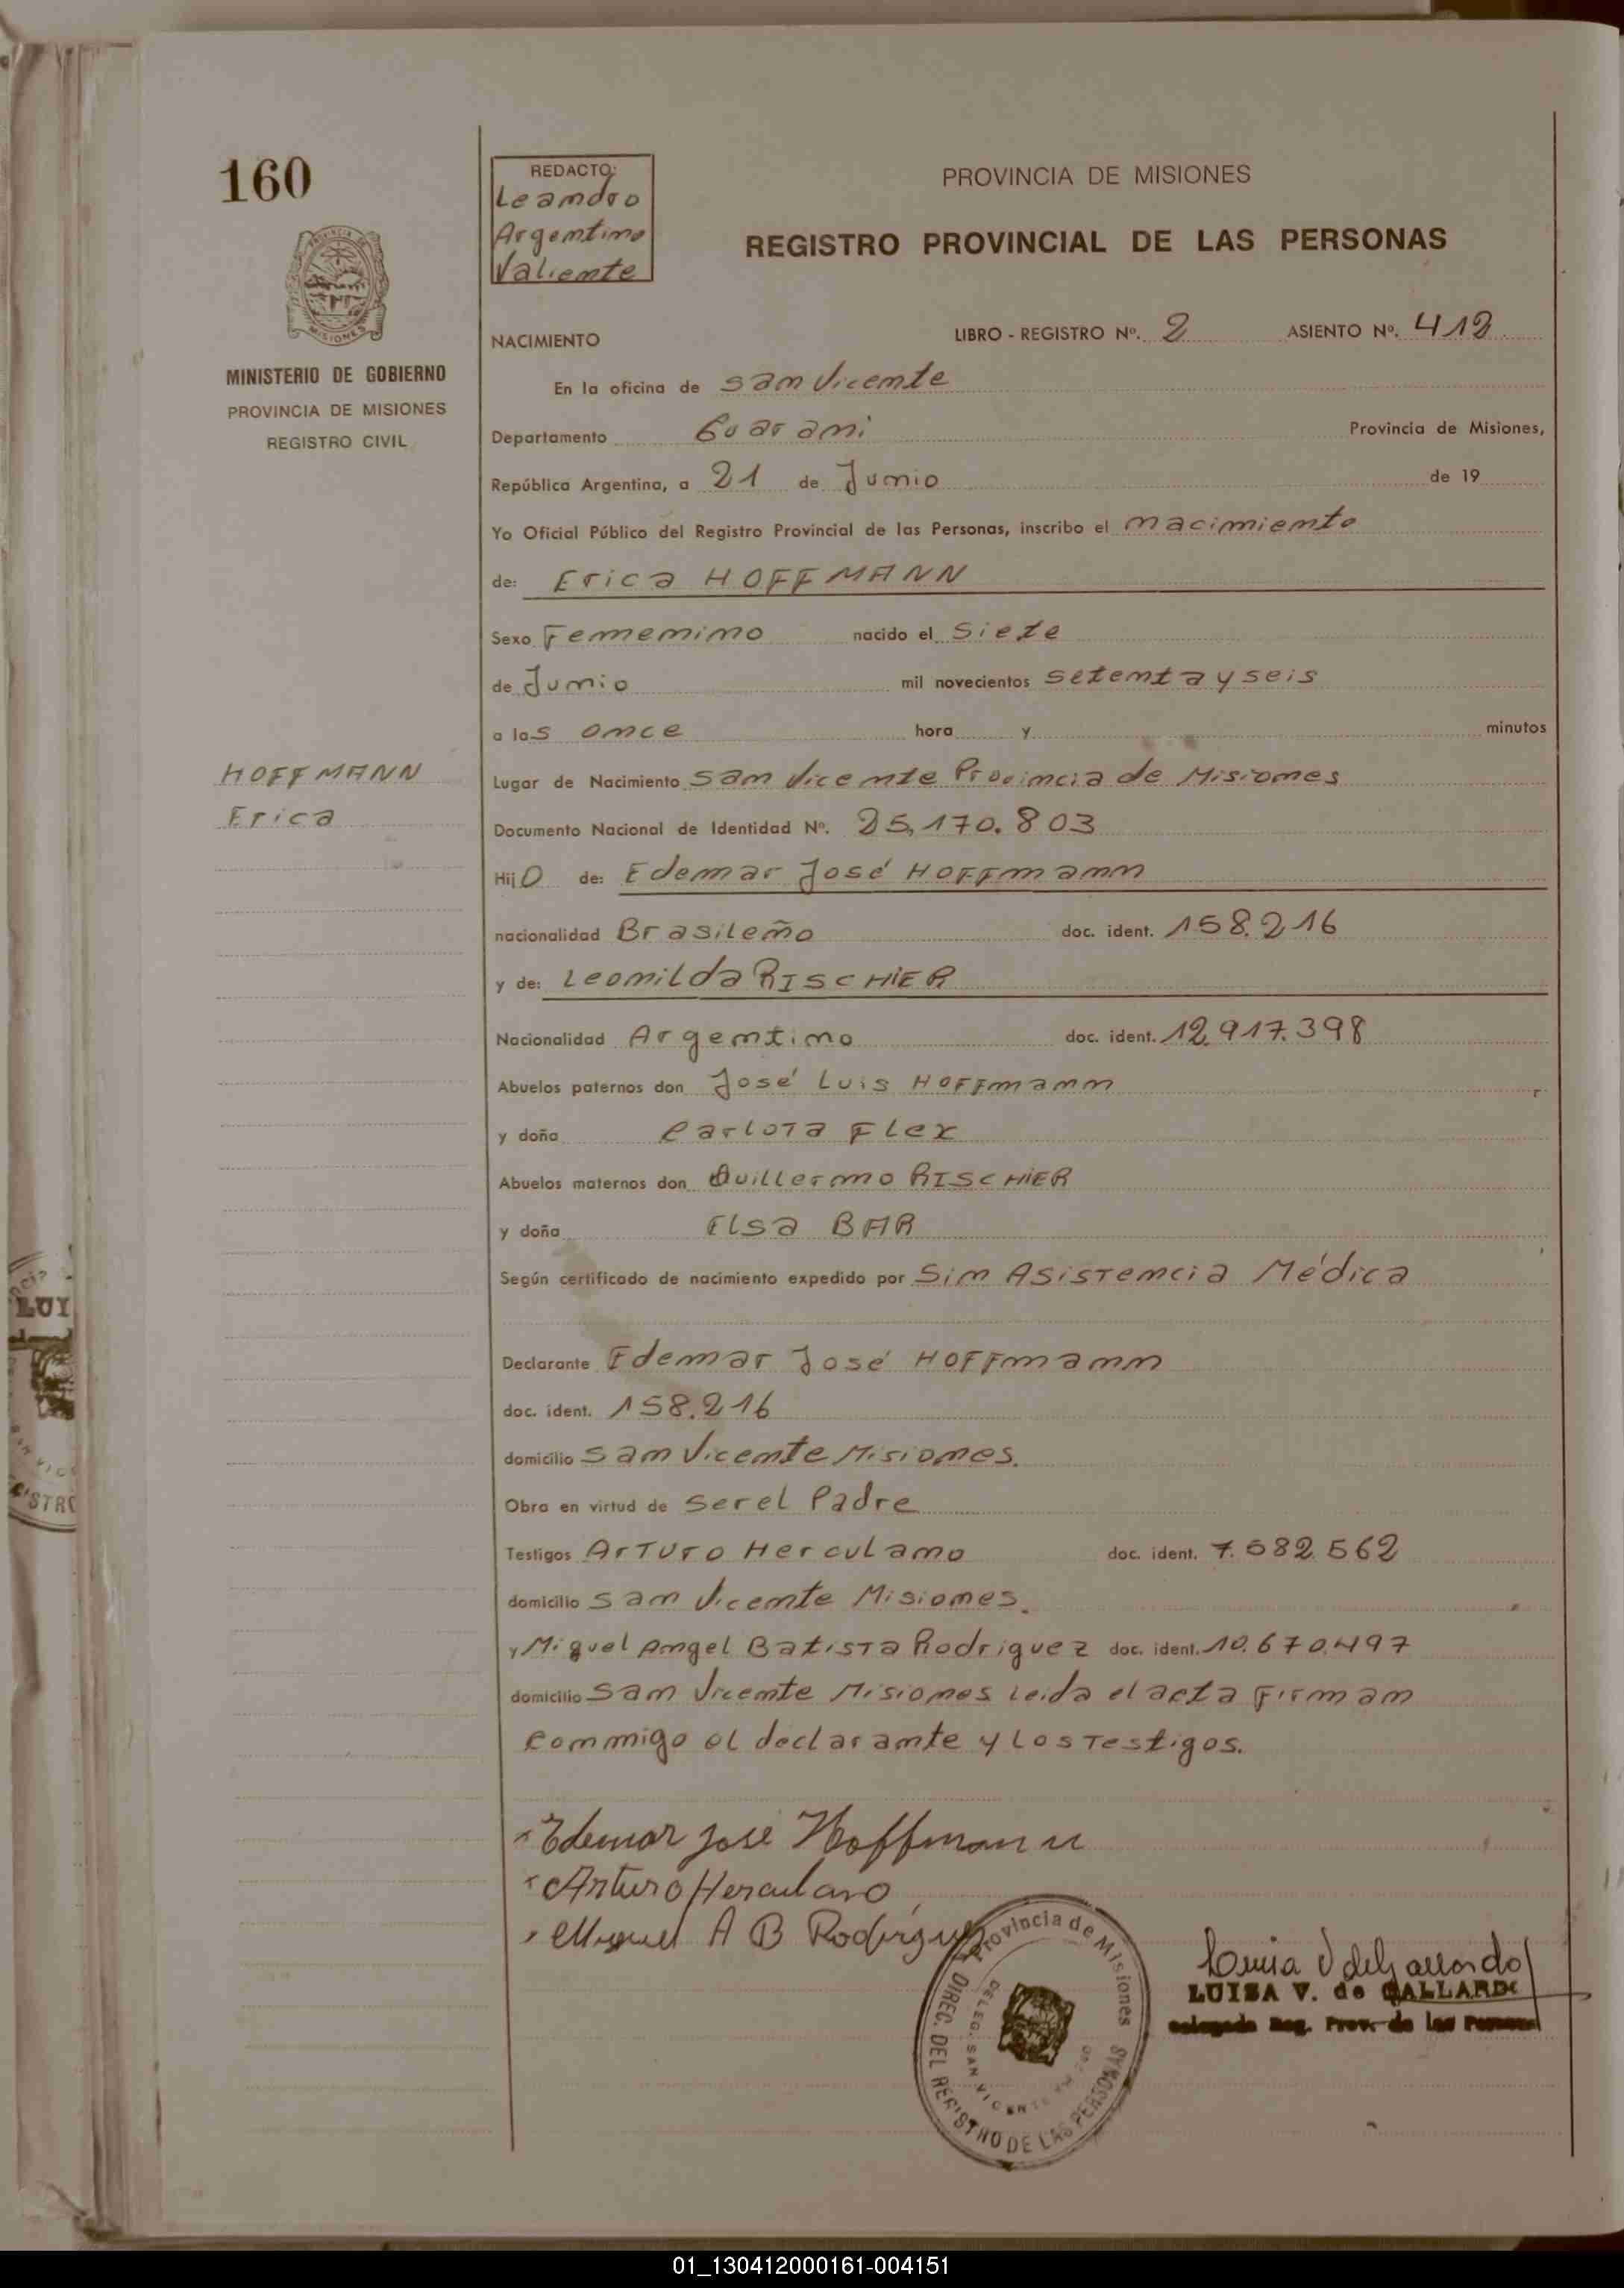 160
REDACTO:
Leandro
Argentino
Valiente
PROVINCIA DE MISIONES
REGISTRO PROVINCIAL DE LAS PERSONAS
MINISTERIO DE GOBIERNO
PROVINCIA DE MISIONES
REGISTRO CIVIL
NACIMIENTO LIBRO - REGISTRO Nº. 2 ASIENTO Nº. 412
En la oficina de San Vicente
Departamento Guarani Provincia de Misiones,
República Argentina, a 21 de Junio de 19
Yo Oficial Público del Registro Provincial de las Personas, inscribo el nacimiento
de: Erica HOFFMANN
Sexo Femenino nacido el Siete
de Junio mil novecientos setenta y seis
a las once hora y minutos
HOFFMANN
Erica
Lugar de Nacimiento San Vicente Provincia de Misiones
Documento Nacional de Identidad Nº. 25.170.803
HijO de: Edemar José HOFFmann
nacionalidad Brasileño doc. ident. 158.216
y de: Leonilda RISCHIER
Nacionalidad Argentino doc. ident. 12.917.398
Abuelos paternos don José Luis HOFFmann
y doña Carlota Flex
Abuelos maternos don Guillermo RISCHIER
y doña Elsa BAR
Según certificado de nacimiento expedido por Sin Asistencia Médica
Declarante Edemar José HOFFmann
doc. ident. 158.216
domicilio San Vicente Misiones.
Obra en virtud de ser el Padre
Testigos Arturo Herculano doc. ident. 7.582.562
domicilio San Vicente Misiones.
y Miguel Angel Batista Rodriguez doc. ident. 10.670.497
domicilio San Vicente Misiones leida el acta Firman
conmigo el declarante y los Testigos.
Edemar José Hoffmann
Arturo Herculano
Miguel A B Rodriguez
Provincia de Misiones
DIREC. DEL REGISTRO DE LAS PERSONAS
DELEG. SAN VICENTE
Luisa V de Gallardo
LUISA V. de GALLARDO
Delegada Reg. Prov. de las Personas
LUI
01_130412000161-004151